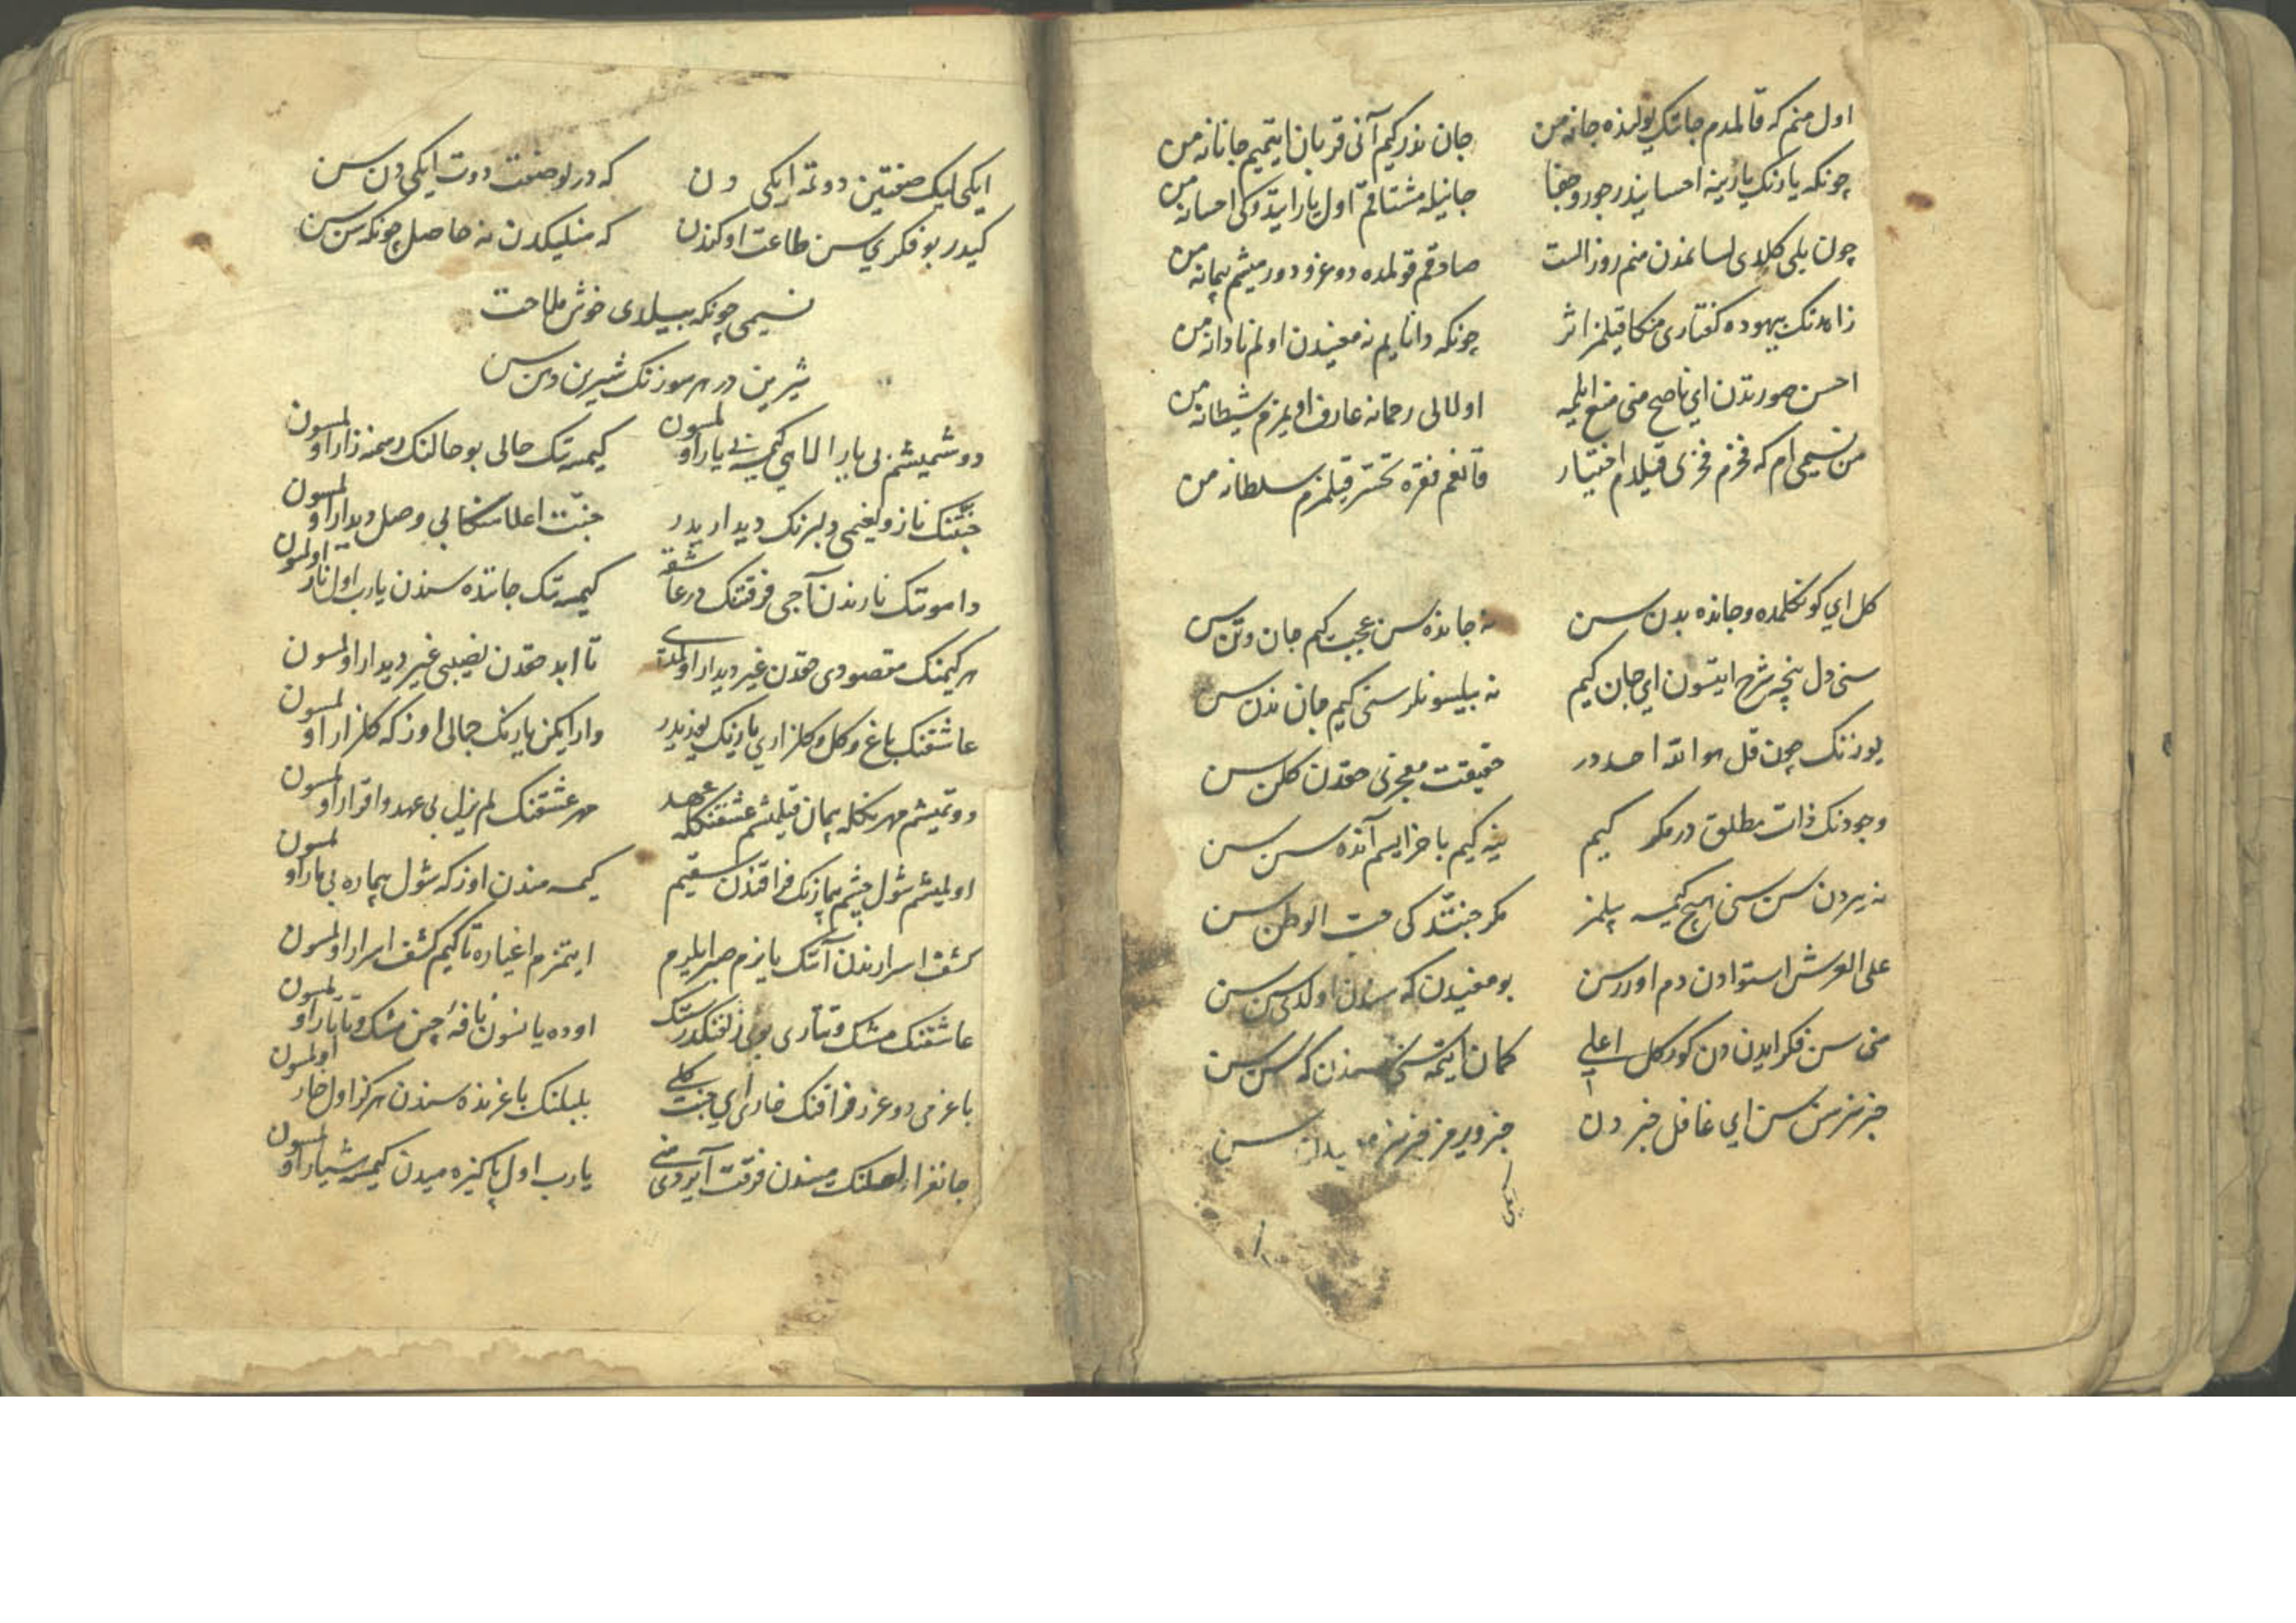 اول منم که قالمدم جانک یولنده جانه من
جان ندر کیم آنی قربان ایتمیم جانانه من
چونکه یارنک یارینه احسانیدر جور و جفا
جانیله مشتاقم اول یار ایتدوکی احسانه من
چون بلی کلدی لسانمدن منم روز الست
صادقم قولمده دوغرو دورمیشم پیمانه من
زاهدنک بیهوده کفتاری منکا قیلمز اثر
چونکه دانایم نه معنیدن اولم نادانه من
احسن صورتدن ای ناصح منی منع ایلمه
اولالی رحمانه عارف اویمزم شیطانه من
من نسیمی ام که فخرم فخری قیلدم اختیار
قانغم فقره تحسر قیلمزم سلطانه من
کل ای کونکلمده و جانده بدن سن
نه جانده سن عجب کیم جان و تن سن
سنی دل نیچه شرح ایتسون ای جان کیم
نه بیلسونلر سنی کیم جان ندن سن
یوزنک چون قل هو الله احد در
حقیقت معجزی حقدن کلن سن
وجودنک ذات مطلق در مکر کیم
ینه کیم باخرایسم آنده سن سن
نه یردن سن سنی هیچ کیمسه بیلمز
مکر جنتده کی حب الوطن سن
علی العرش استوادن دم اورر سن
بو معنیدن که سندن اولدی سن سن
منی سن فکر ایدن دن کورکل اعلی
کمان ایتمه سنی سندن که سن سن
خبرسز سن سن ای غافل خبردن
خبر ویرمز خبرسز سن
ایکی
ایکی لیک صفتین دوتمه ایکی دن
که در بو صفت دوت ایکی دن سن
کیدر بو فکری سن طاعت اوکندن
که منلیکدن نه حاصل چونکه سن سن
نسیمی چونکه بیلدی خوش ملاحت
شیرین در هر سوزنک شیرین دهن سن
دوشمیشم بی یار الاهی کیمسه بی یار اولمسون
کیمسه نک حالی بو حالنک رسمنه زار اولمسون
جنتنک ناز و نعیمی دلبرنک دیداریدر
جنت اعلا منکا بی وصل دیدار اولمسون
دامونک نارندن آجی فرقتنک در عاشقه
کیمسه نک جاننده سندن یارب اول نار اولمسون
هر کیمنک مقصودی حقدن غیر دیدار اولمدی
تا ابد حقدن نصیبی غیر دیدار اولمسون
عاشقنک باغ و کل و کلزاری یارنک یوزیدر
وار ایکن یارنک جمالی اوزکه کلزار اولمسون
دوتمیشم مهرنکله پیمان قیلمشم عشقنکله عهد
مهر عشقنک لم یزل بی عهد و اقرار اولمسون
اولمیشم شول چشم بیمارنک فراقندن سقیم
کیمسه مندن اوزکه شول بیماره بیمار اولمسون
کشف اسرارندن آنک یانرم صبر ایلرم
ایتمزم اغیاره تا کیم کشف اسرار اولمسون
عاشقنک مشک و تتاری بوی زلفنکدر سنک
اوده یانسون نافهٔ چین مشک و تاتار اولمسون
باغرمی دوغرر فراقنک خاری ای جنت کلی
بلبلنک باغرنده سندن هرکز اول خار اولمسون
جانفزا لعلنک میندن فرقت آیردی منی
یارب اول پاکیزه میدن کیمسه هشیار اولمسون